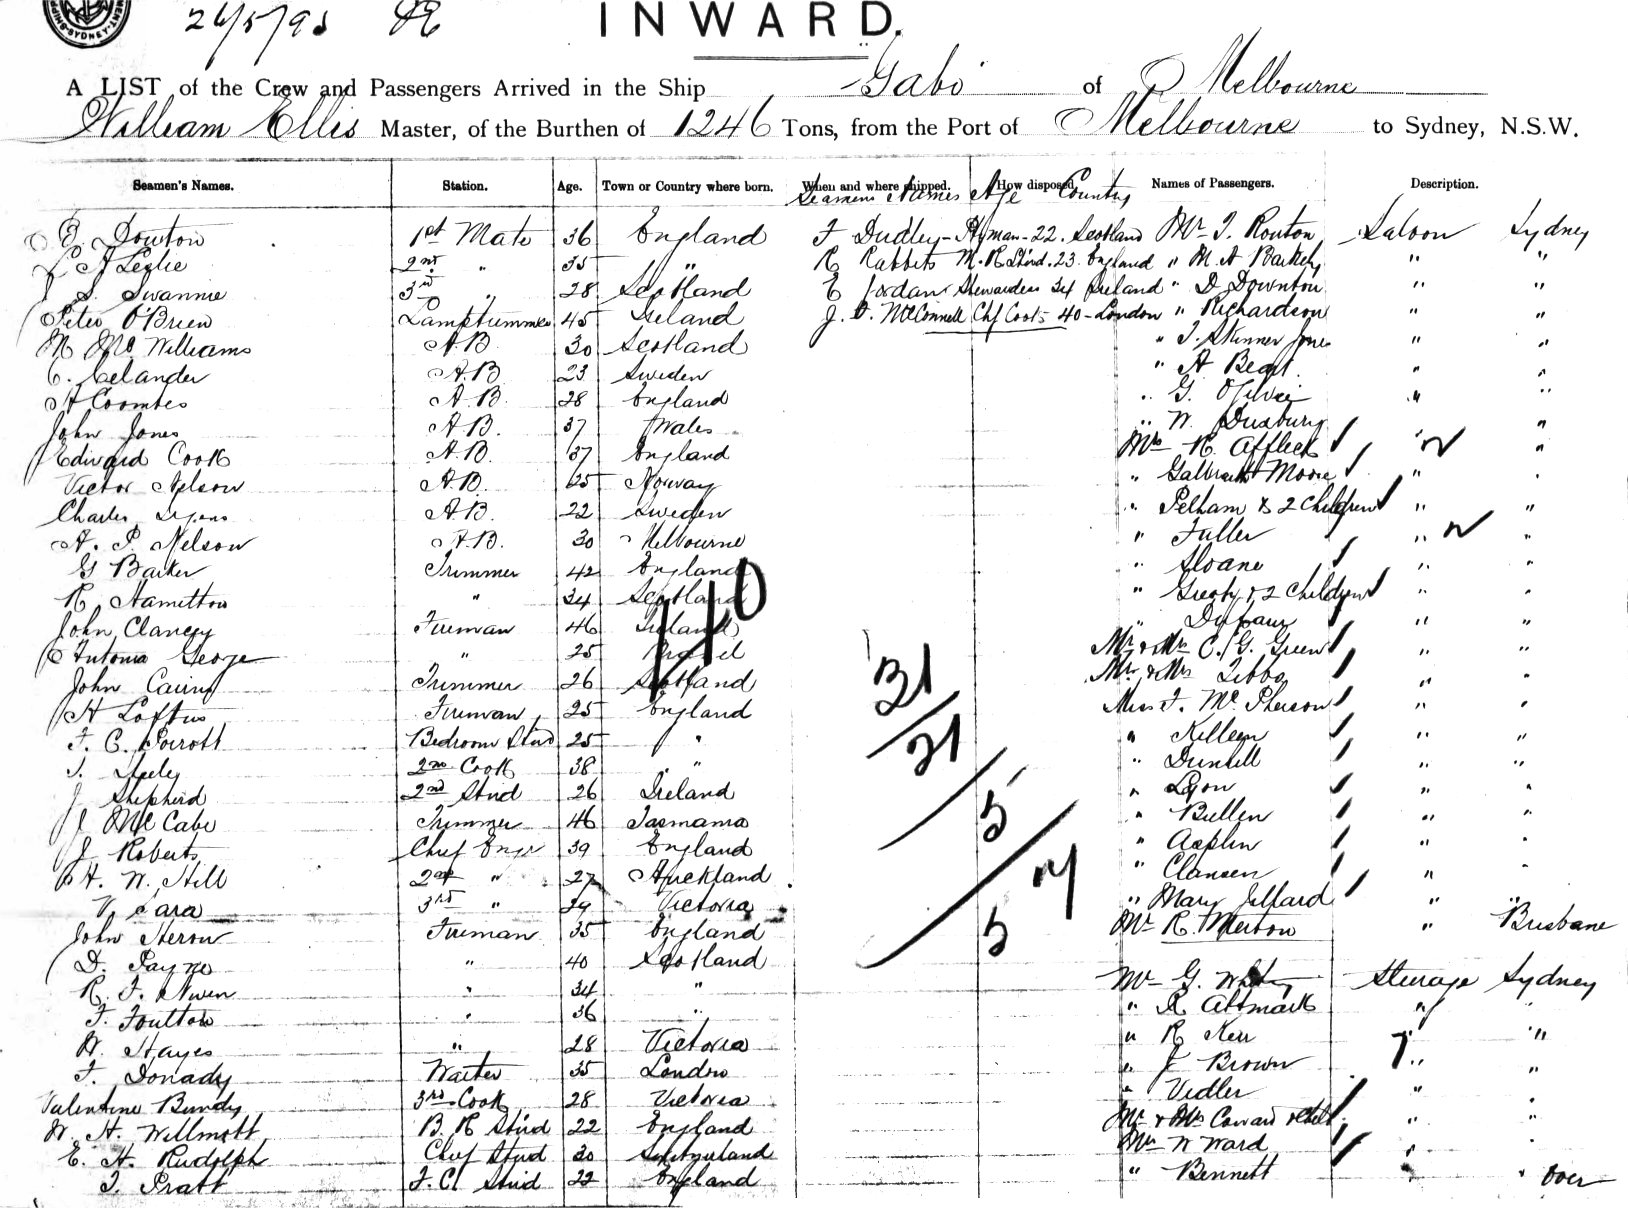 SYDNEY
26/5/95
INWARD.
A LIST of the Crew and Passengers Arrived in the Ship Gabo of Melbourne
William Ellis Master, of the Burthen of 1246 Tons, from the Port of Melbourne to Sydney, N.S.W.
Seamen's Names. Station. Age. Town or Country where born. When and where shipped. How disposed Names of Passengers. Description.
Seamens Names Age Country
Dowton 1st Mate 36 England F Dudley - 22. Scotland Mr T. Routon Saloon Sydney
Leslie 2nd " 35 " R Rabbits 23. England " M. A Barkly " "
S. Swannie 3rd " 28 Scotland E Jordan Stewardess 34 Ireland " D Downton " "
Peter O'Brien Lamptrimmer 45 Ireland J. McConnell Chf Cook 40 - London " Richardson " "
Mc Williams A.B 30 Scotland " T. Skinner Jones " "
C. Celander A.B. 23 Sweden " A Begt. " "
H Coombes A.B. 28 England " G. Ogilvie " "
John Jones A.B. 37 Wales " W. Duxbury "
Edward Cook A.B. 37 England Mrs R. Affleck " "
Victor Nelson A.B. 25 Norway " Galbraith Moore " "
Charles A.B. 22 Sweden " Pelham & 2 Children " "
A. P. Nelson A.B. 30 Melbourne " Fuller " "
G Barker Trimmer 42 England " Sloane " "
R. Hamilton " 34 Scotland " & 2 Children " "
John Clancy Fireman 46 Ireland " " "
Antonia George " 25 Brazil Mr & Mrs C. G. Green " "
John Cairns Trimmer 26 Scotland Mr & Mrs Tibbs " "
H Loftus Fireman 25 England Miss F. McPherson " "
F. C. Porrott Bedroom Stwd 25 " " Killeen " "
T. Neely 2nd Cook 38 " " " "
J Shepherd 2nd Stwd 26 Ireland " Lyon " "
J McCabe Trimmer 46 Tasmania " Bullen " "
J Roberts Chief Engr 39 England " Asplin " "
H. W. Hill 2nd " 27 Auckland " Clansen " "
V. Cara 3rd " 29 Victoria " Mary Jelfard " "
John Heron Fireman 35 England Mr R. Merton " Brisbane
D. Payne " 40 Scotland
R. J. Niven " 34 " Mr G. Steerage Sydney
F. Foulton " 36 " " R Altmark " "
W. Hayes " 28 Victoria " R Kerr "
F. Donady Waiter 35 London " J Brown " "
Valentine Bundy 3rd Cook 28 Victoria " Vidler " "
W. H. Willmott B. R Stwd 22 England Mr & Mrs Coward & child " "
E. H. Rudolph Chief Stwd 30 Switzerland Mrs W Ward " "
T. Pratt F. C. Stwd 22 England " Bennett " " over
110
31
21
5
5